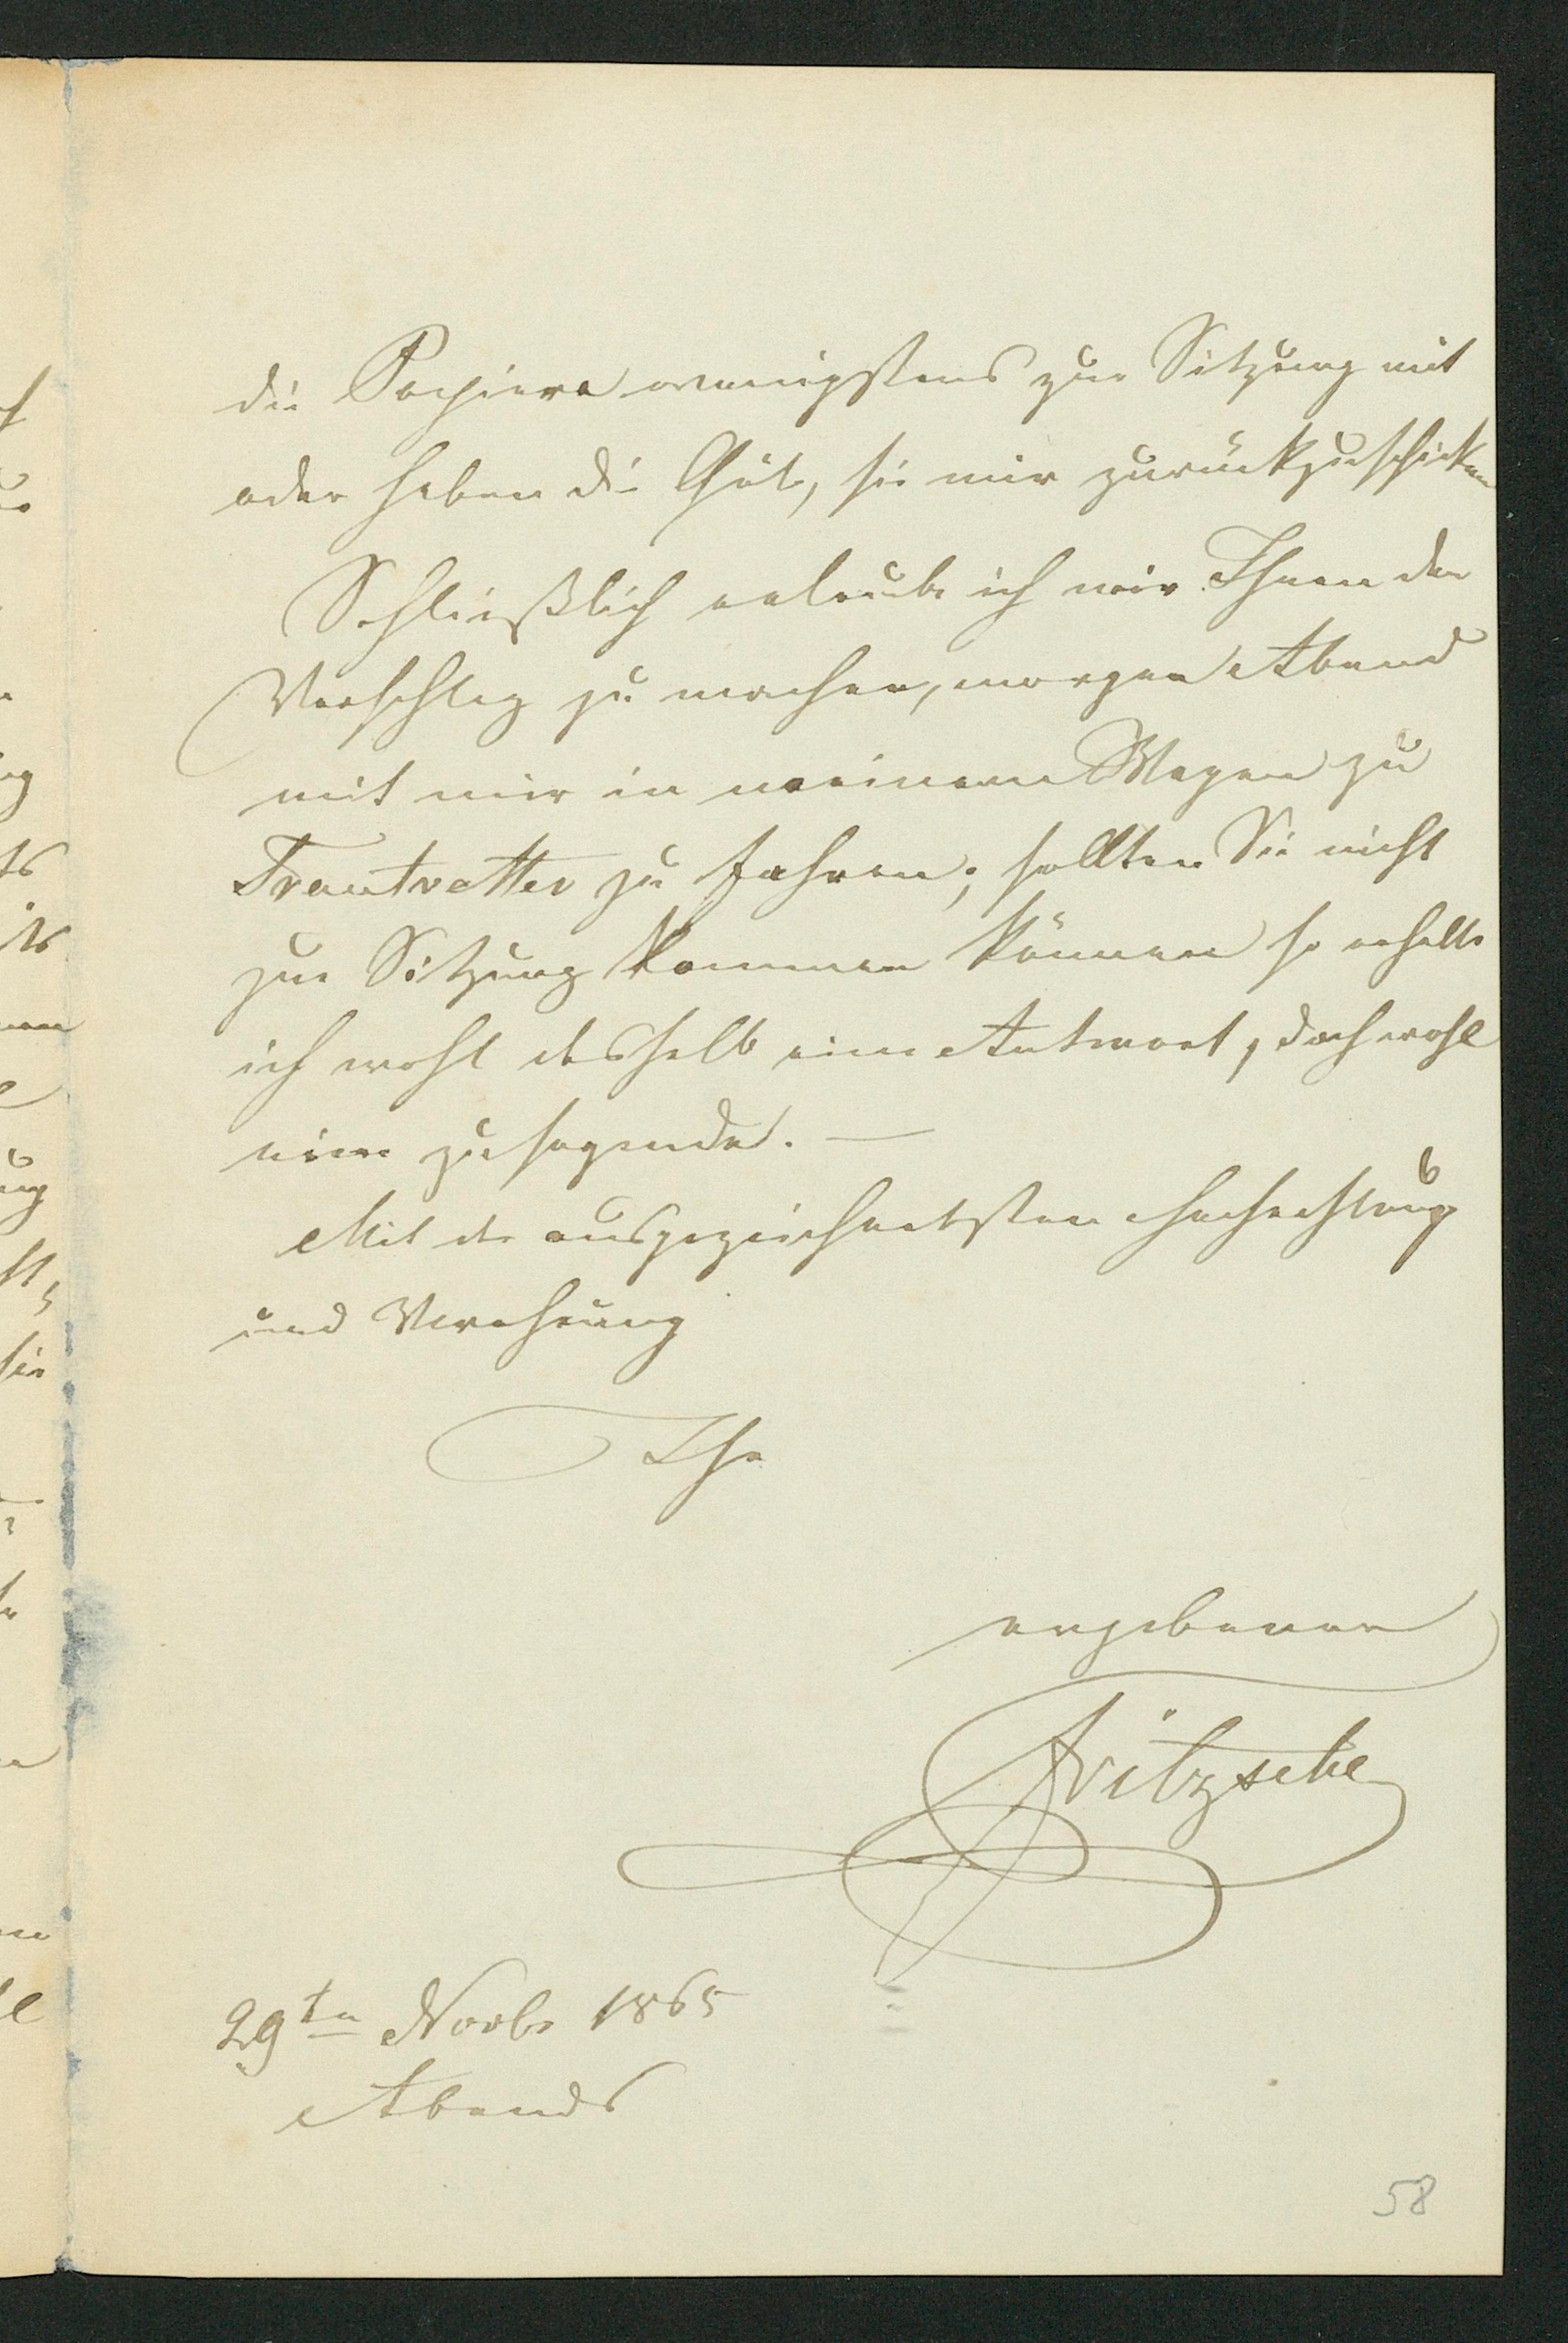 die Papiere wenigstens zur Sitzung mit
oder haben die Güte, sie mir zurückzuschicken
Schließlich erlaube ich mir Ihnen den
Vorschlag zu machen, morgen Abend
mit mir in meinem Wagen zu
Trautvetter zu fahren; sollten Sie nicht
zur Sitzung kommen können so erhalte
ich wohl deshalb eine Antwort, doch wohl
eine zusagende. —
Mit der ausgezeichnetsten Hochachtung
und Verehrung
Ihr
ergebener
Fritzsche
29ten Novbr 1865
Abends
58